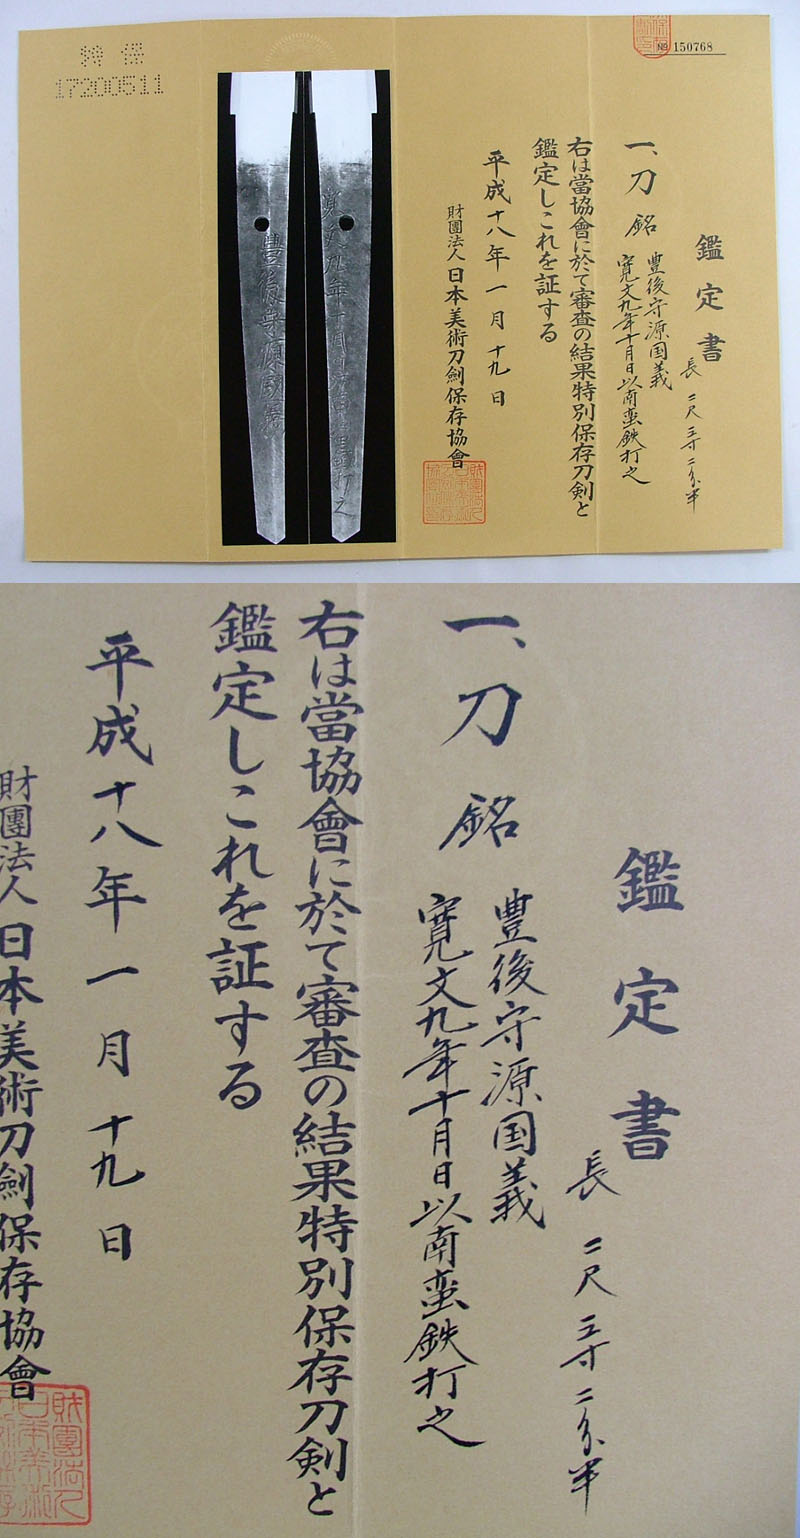 特保
17200511
№ 150768
鑑定書
長 二尺三寸二分半
一、刀 銘
豊後守源国義
寛文九年十月日以南蛮鉄打之
右は當協會に於て審査の結果特別保存刀剣と
鑑定しこれを証する
平成十八年一月十九日
財團法人日本美術刀劍保存協會
鑑定書
長 二尺三寸二分半
一、刀 銘
豊後守源国義
寛文九年十月日以南蛮鉄打之
右は當協會に於て審査の結果特別保存刀剣と
鑑定しこれを証する
平成十八年一月十九日
財團法人日本美術刀劍保存協會